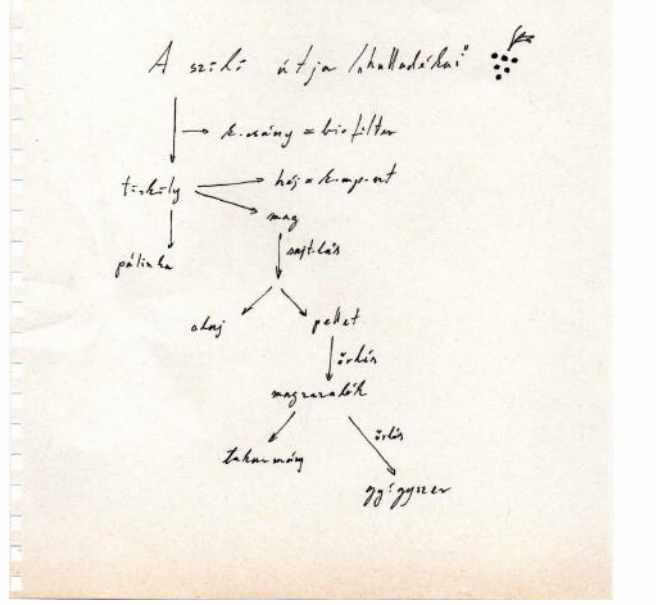 A szőlő útja / "hulladékai"
kocsány = biofilter
törköly
héj = komposzt
mag
pálinka
sajtolás
olaj
pellet
őrlés
magzuzalék
őrlés
takarmány
gyógyszer